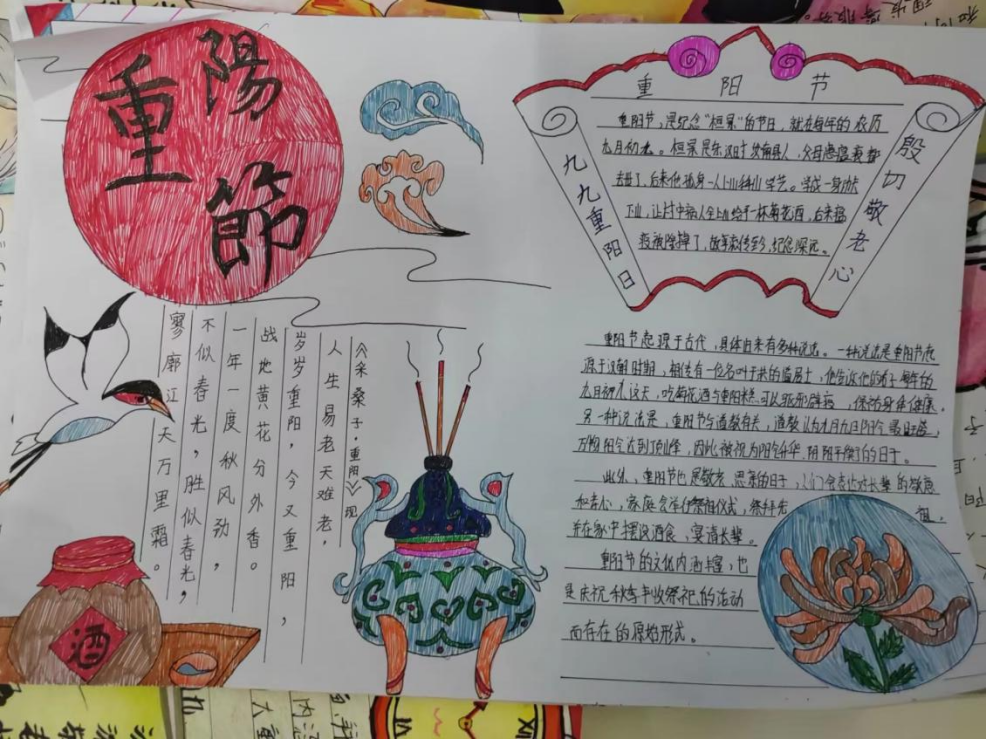 重陽節
重阳节
九九重阳日
殷切敬老心
重阳节,是纪念“桓景”的节日,就在每年的农历
九月初九。桓景是东汉时汝南县人,父母患瘟疫都
去世了,后来他孤身一人上山拜仙学艺。学成一身功夫
下山,让村中病人全上山给予一杯菊花酒,后来瘟
疫被除掉了,故事流传至今,纪念深远。
《采桑子·重阳》现
人生易老天难老,
岁岁重阳,今又重阳,
战地黄花分外香。
一年一度秋风劲,
不似春光,胜似春光,
寥廓江天万里霜。
酒
重阳节起源于古代,具体由来有多种说法。一种说法是重阳节起
源于汉朝时期,相传有一位名叫于洪的道士,他告诉他的弟子每年的
九月初九这天,吃菊花酒与重阳糕可以驱邪辟疫,保持身体健康。
另一种说法是,重阳节与道教有关,道教认为九月九日阳气最旺盛,
万物阳气达到顶峰,因此被视为阳气升华、阴阳平衡的日子。
此外,重阳节也是敬老、思亲的日子,人们会表达对长辈的敬意
和孝心,家庭会举行祭祖仪式,祭拜先祖,
并在家中摆设酒食、宴请长辈。
重阳节的文化内涵丰富,也
是庆祝秋季丰收祭祀的活动
而存在的原始形式。